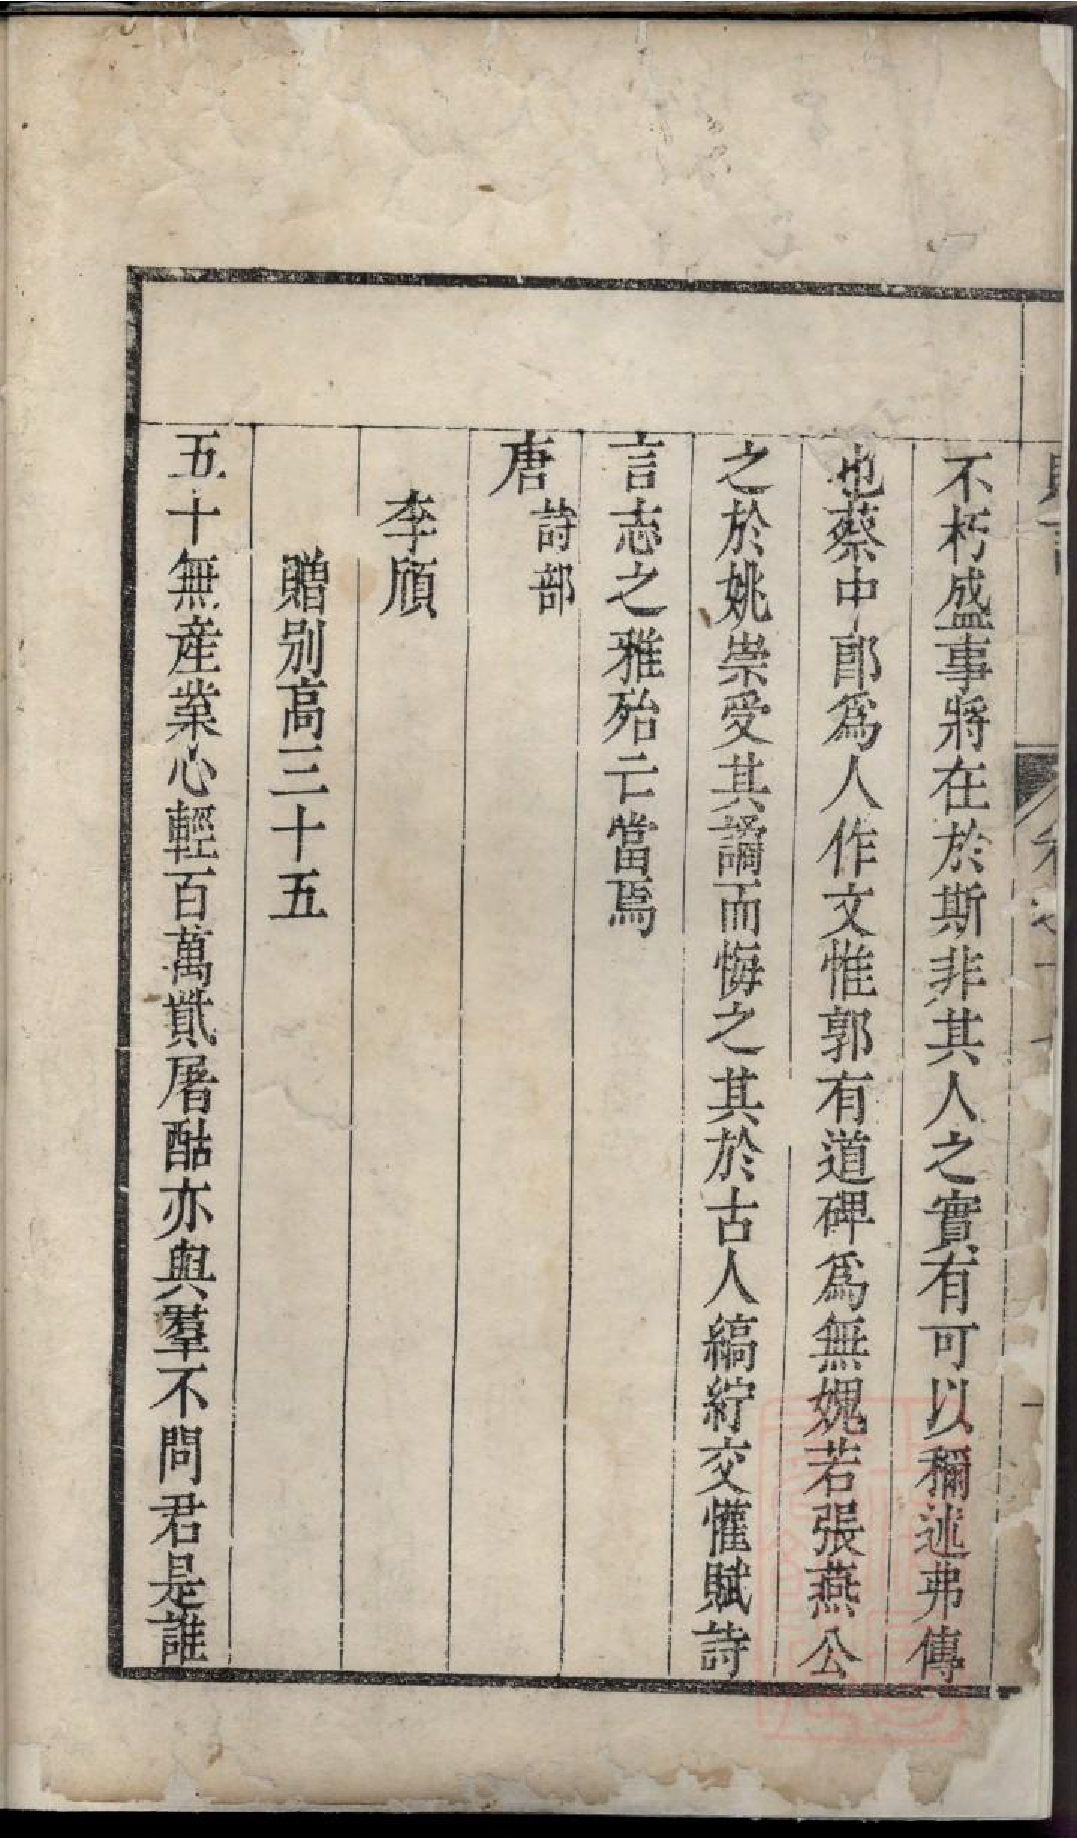 不朽盛事將在於斯非其人之實有可以稱述弗傳
也蔡中郎爲人作文惟郭有道碑爲無媿若張燕公
之於姚崇受其譎而悔之其於古人縞紵交懽賦詩
言志之雅殆亡當焉
唐詩部
李頎
贈别高三十五
五十無產業心輕百萬貲屠酤亦與羣不問君是誰